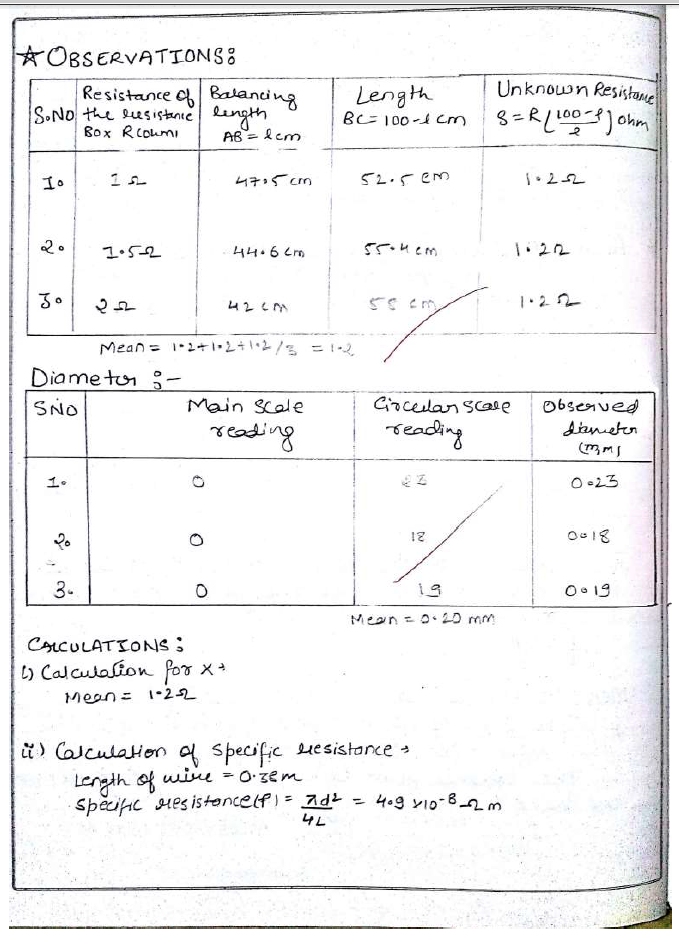 ☆ OBSERVATIONS:
S.NO | Resistance of the resistance Box R(ohm) | Balancing length AB = l cm | Length BC = 100-l cm | Unknown Resistance S = R [100-l / l] ohm
1. | 1 Ω | 47.5 cm | 52.5 cm | 1.2 Ω
2. | 1.5 Ω | 44.6 cm | 55.4 cm | 1.2 Ω
3. | 2 Ω | 42 cm | 58 cm | 1.2 Ω
Mean = 1.2+1.2+1.2/3 = 1.2
Diameter :-
SNO | Main Scale reading | Circular scale reading | Observed diameter (mm)
1. | 0 | 23 | 0.23
2. | 0 | 18 | 0.18
3. | 0 | 19 | 0.19
Mean = 0.20 mm
CALCULATIONS :
i) Calculation for X →
Mean = 1.2 Ω
ii) Calculation of specific resistance →
Length of wire =
Specific resistance (ρ) = πd² / 4L = 4.9 x10-8 Ω m